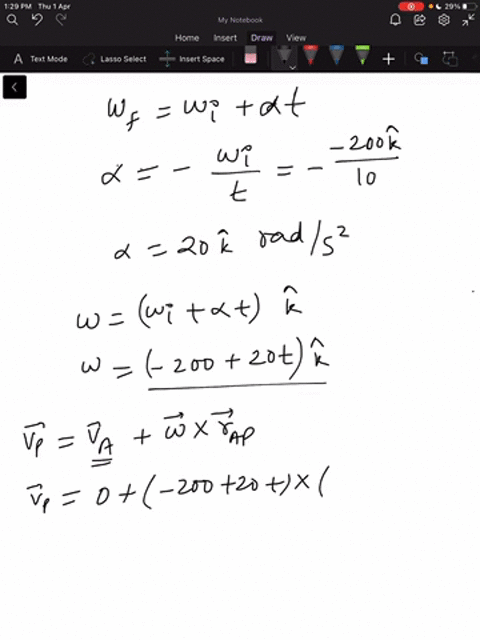 1:29 PM Thu 1 Apr
29%
My Notebook
Home Insert Draw View
A Text Mode Lasso Select Insert Space
ω_f = ω_i + αt
α = - ω_i/t = - -200k̂/10
α = 20 k̂ rad/s²
ω = (ω_i + αt) k̂
ω = (-200 + 20t) k̂
v⃗_P = v⃗_A + ω⃗ × r⃗_AP
v⃗_P = 0 + (-200 + 20t) × (